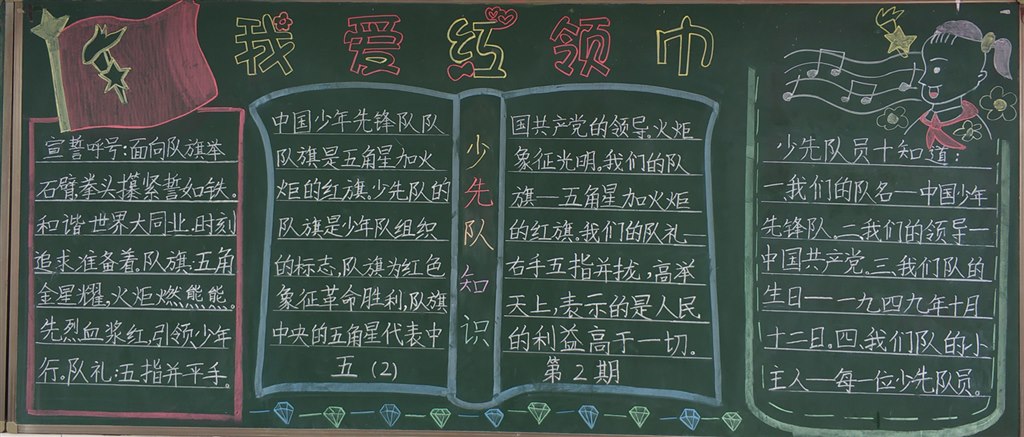 我爱红领巾
宣誓呼号:面向队旗举
右臂拳头攥紧誓如铁.
和谐世界大同业.时刻
追求准备着.队旗:五角
金星耀,火炬燃熊熊.
先烈血浆红,引领少年
行.队礼:五指并平手.
中国少年先锋队队
队旗是五角星加火
炬的红旗.少先队的
队旗是少年队组织
的标志,队旗为红色
象征革命胜利,队旗
中央的五角星代表中
五(2)
少先队知识
国共产党的领导.火炬
象征光明.我们的队
旗—五角星加火炬
的红旗.我们的队礼—
右手五指并拢,高举
天上,表示的是人民
的利益高于一切.
第2期
少先队员十知道:
一我们的队名—中国少年
先锋队.二我们的领导—
中国共产党.三、我们队的
生日——一九四九年十月
十三日.四、我们队的小
主人—每一位少先队员.